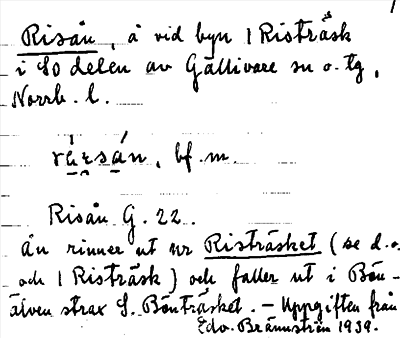 Risån, å vid byn 1 Risträsk
i SO delen av Gällivare sn o. tg,
Norrb. l.
bf. m.
Risån G. 22.
ån rinner ut ur Risträsket (se d. o.
och 1 Risträsk) och faller ut i Bön-
älven strax S. Bönträsket. – Uppgiften från
Edv. Brännström 1939.